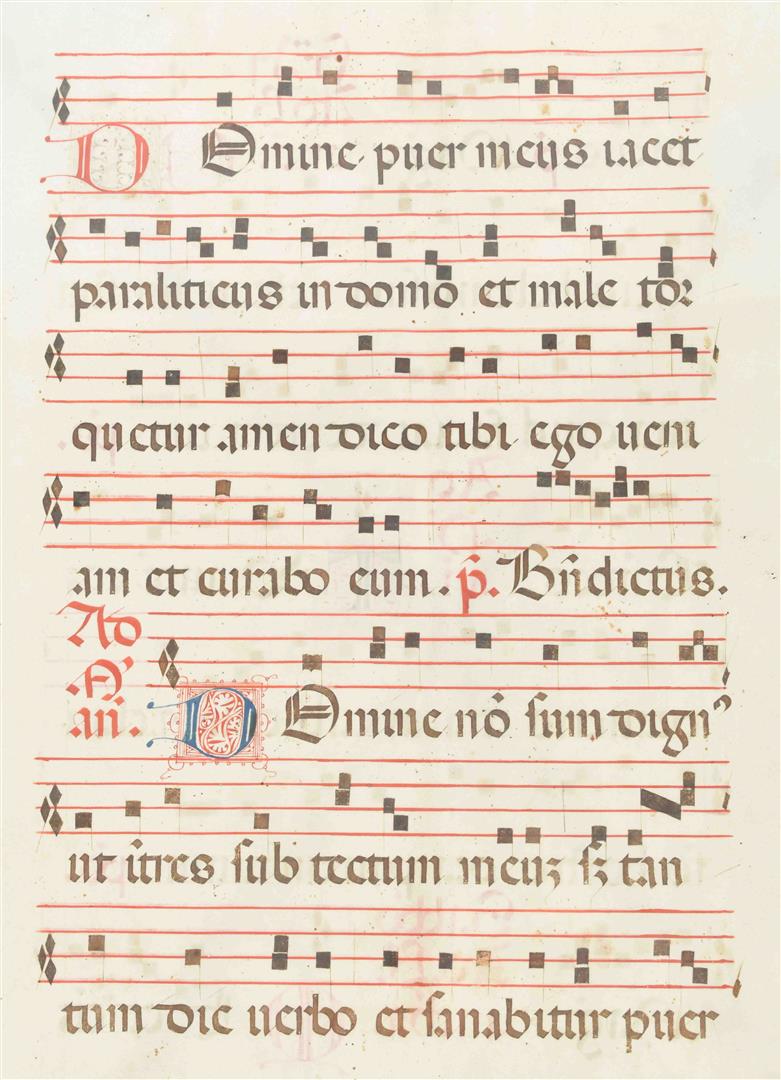 DOmine puer meus iacet
paraliticus in domo et male tor
quetur amen dico tibi ego ueni
am et curabo eum. p̄. Bn̄dictus.
Ad
.Q᷒
an̄. DOmine nō sum dignꝰ
ut ītres sub tectum meuꝫ sꝫ tan
tum dic uerbo et sanabitur puer